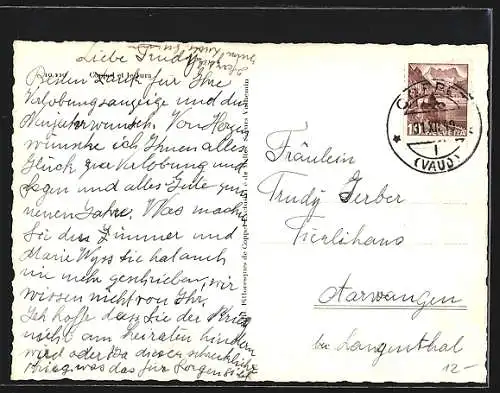 Liebe Trudy!
Coppet et le Jura
Besten Dank für Ihre
Verlobungsanzeige und die
Neujahrswünsche. Von Herzen
wünsche ich Ihnen alles
Glück zur Verlobung und
Segen und alles Gute zum
neuen Jahre. Was machen
Sie
Zimmer und
Marie Wyss sie hat auch
nie mehr geschrieben, wir
wissen nicht von Ihr.
Ich hoffe dass Sie der Krieg
nicht am heiraten hindern
wird oder? Ja dieser schreckliche
Krieg, was das für Sorgen
COPPET
(VAUD)
HELVETIA
Fräulein
Trudy Gerber
Tierlihaus
Aarwangen
bei Langenthal
12-